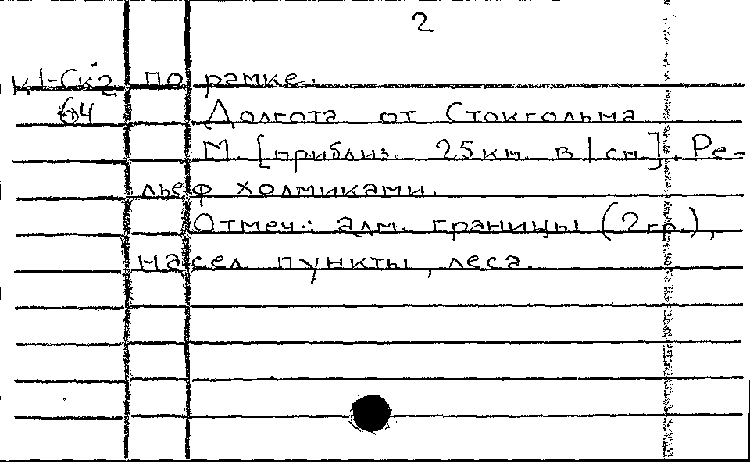 2
К1-Ск2 по рамке.
64 Долгота от Стокгольма
М. [приблиз. 25 км. в 1 см.]. Ре-
льеф холмиками.
Отмеч.: адм. границы (2 гр.),
насел. пункты, леса.